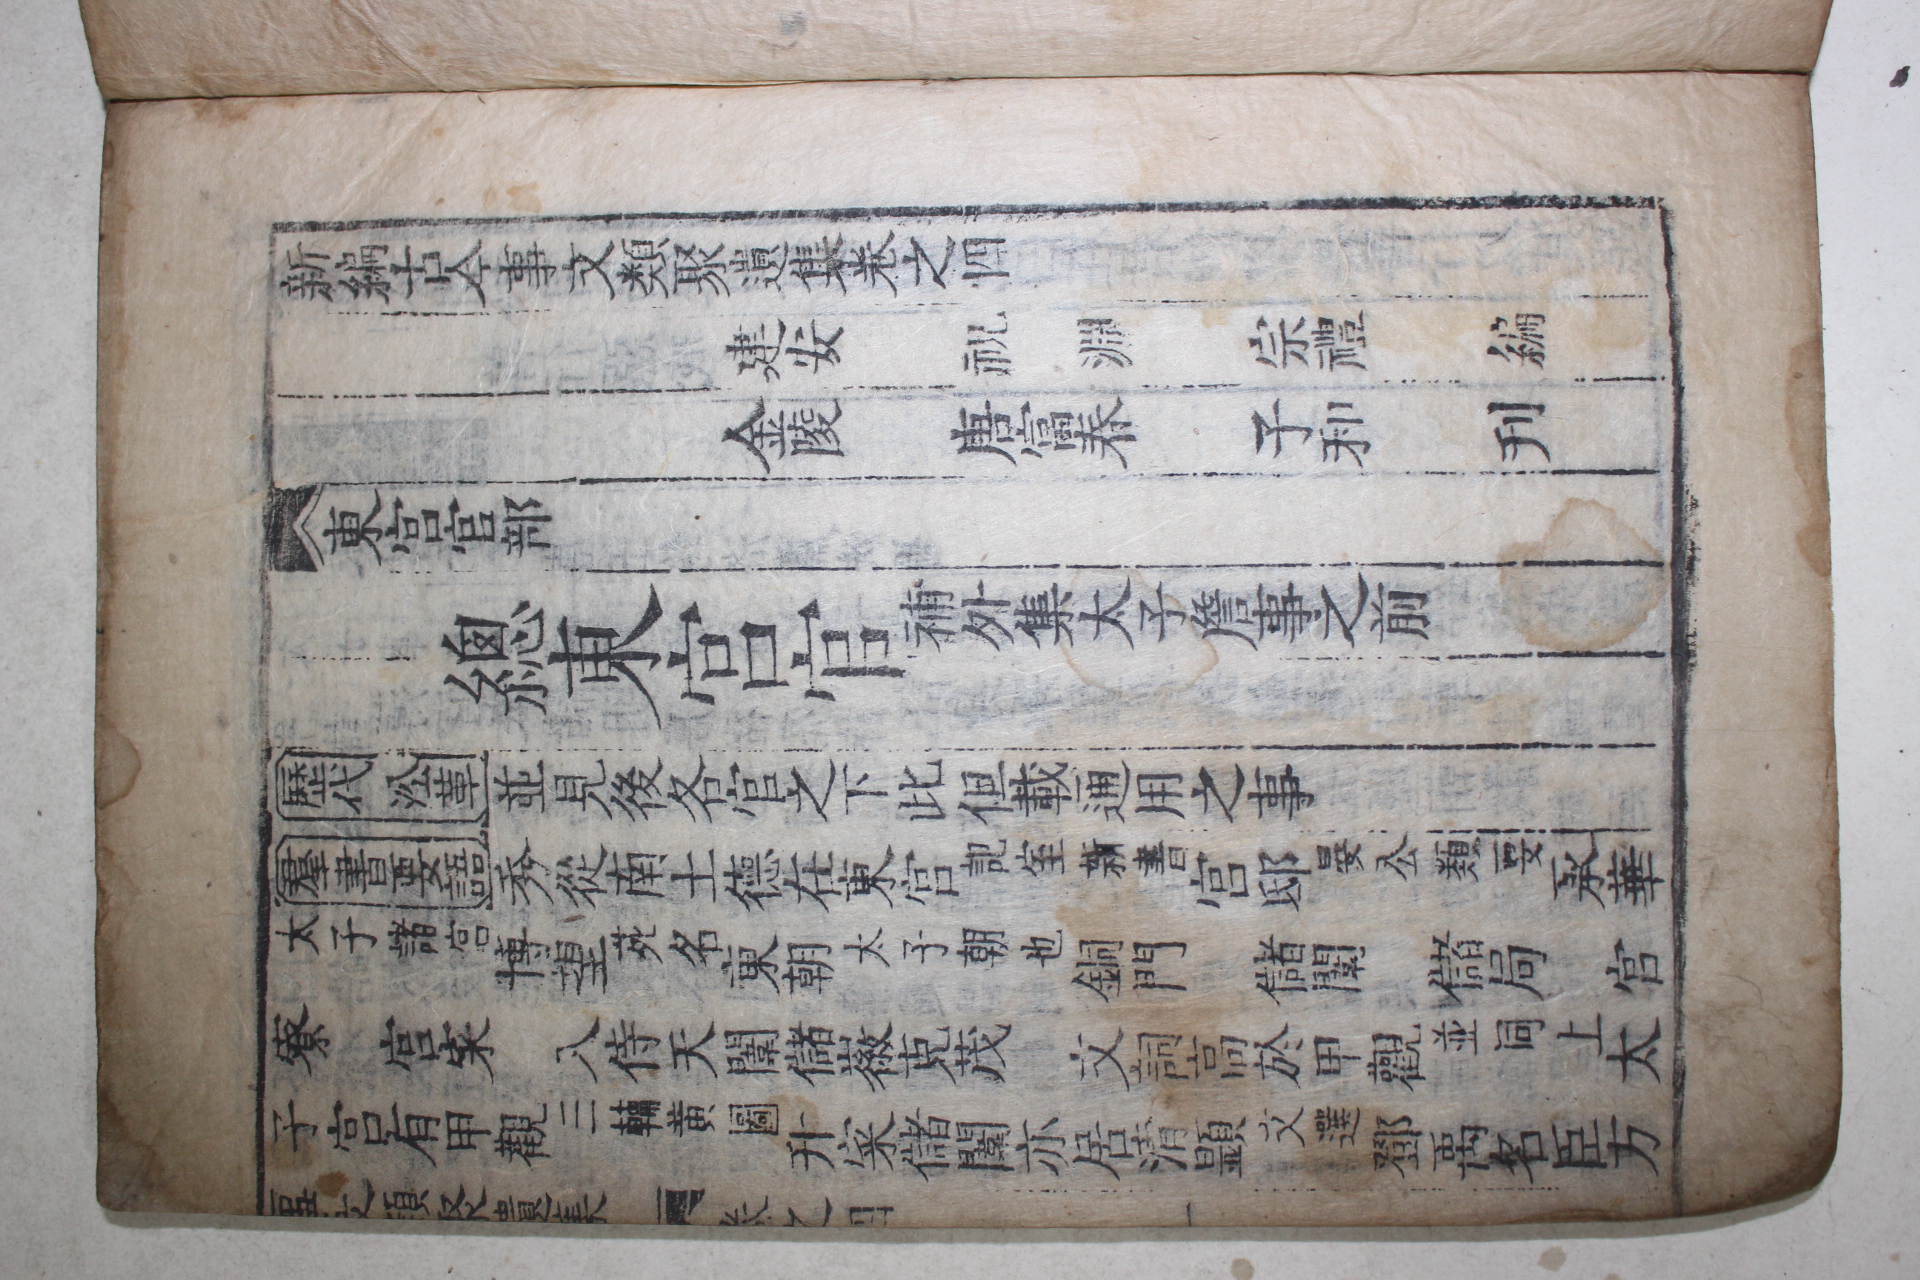 新編古今事文類聚遺集卷之四
建安 祝 淵 宗禮 編
金陵 唐富春 子和 刊
東宮官部
總東宮官 補外集太子詹事之前
歷代沿革 並見後各官之下此但載通用之事
羣書要語 秀從南土德在東宮 記室新書 宮邸 晏公類要 承華
太子諸宮 博望 苑名 東朝 太子朝也 銅門 儲闈 儲局 宮
寮 宮寀 入侍天闈儲徽克茂 文詞高於甲觀 並同上 太
子宮有甲觀 三輔黃圖 升寀儲闈亦居清顯 文選 鄧萬名臣力
事文類聚遺集 卷之四 一